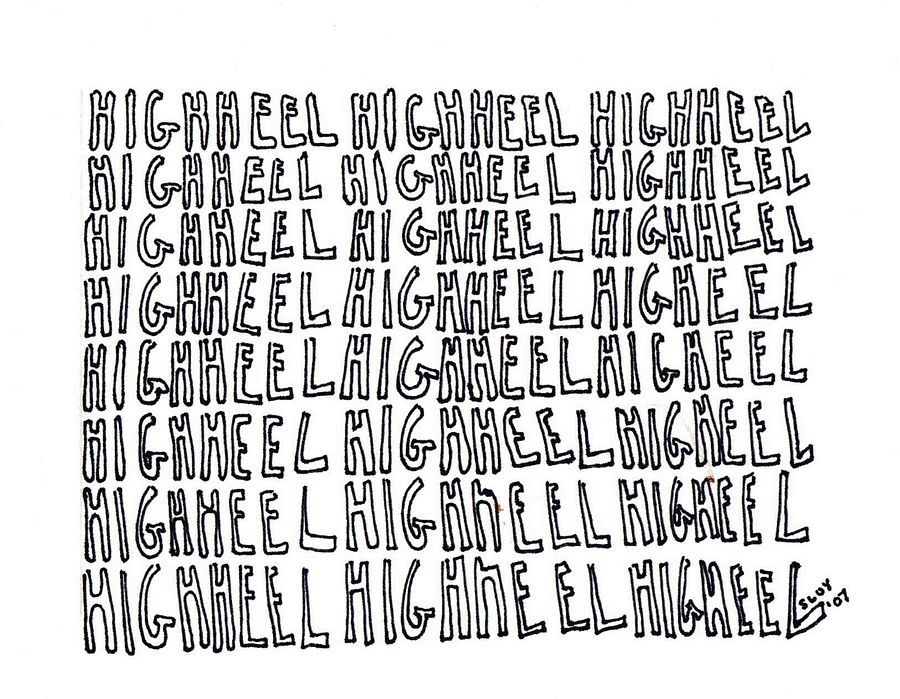 HIGHHEEL HIGHHEEL HIGHHEEL
HIGHHEEL HIGHHEEL HIGHHEEL
HIGHHEEL HIGHHEEL HIGHHEEL
HIGHHEEL HIGHHEEL HIGHEEL
HIGHHEEL HIGHHEEL HIGHEEL
HIGHHEEL HIGHHEEL HIGHEEL
HIGHHEEL HIGHhEEL HIGHEEL
HIGHHEEL HIGHhEEL HIGHEEL
SLUY
'07